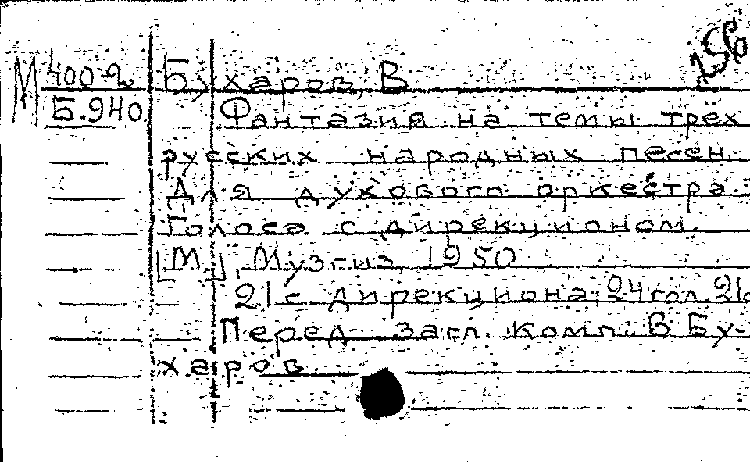 156
М 400-2 Бухаров, В
Б.940 Фантазия на темы трёх
русских народных песен.
Для духового оркестра.
Голоса с дирекционом.
[М.], Музгиз 1950
21 с дирекциона; 24 гол. 21с
Перед загл. комп. В Бу-
харов